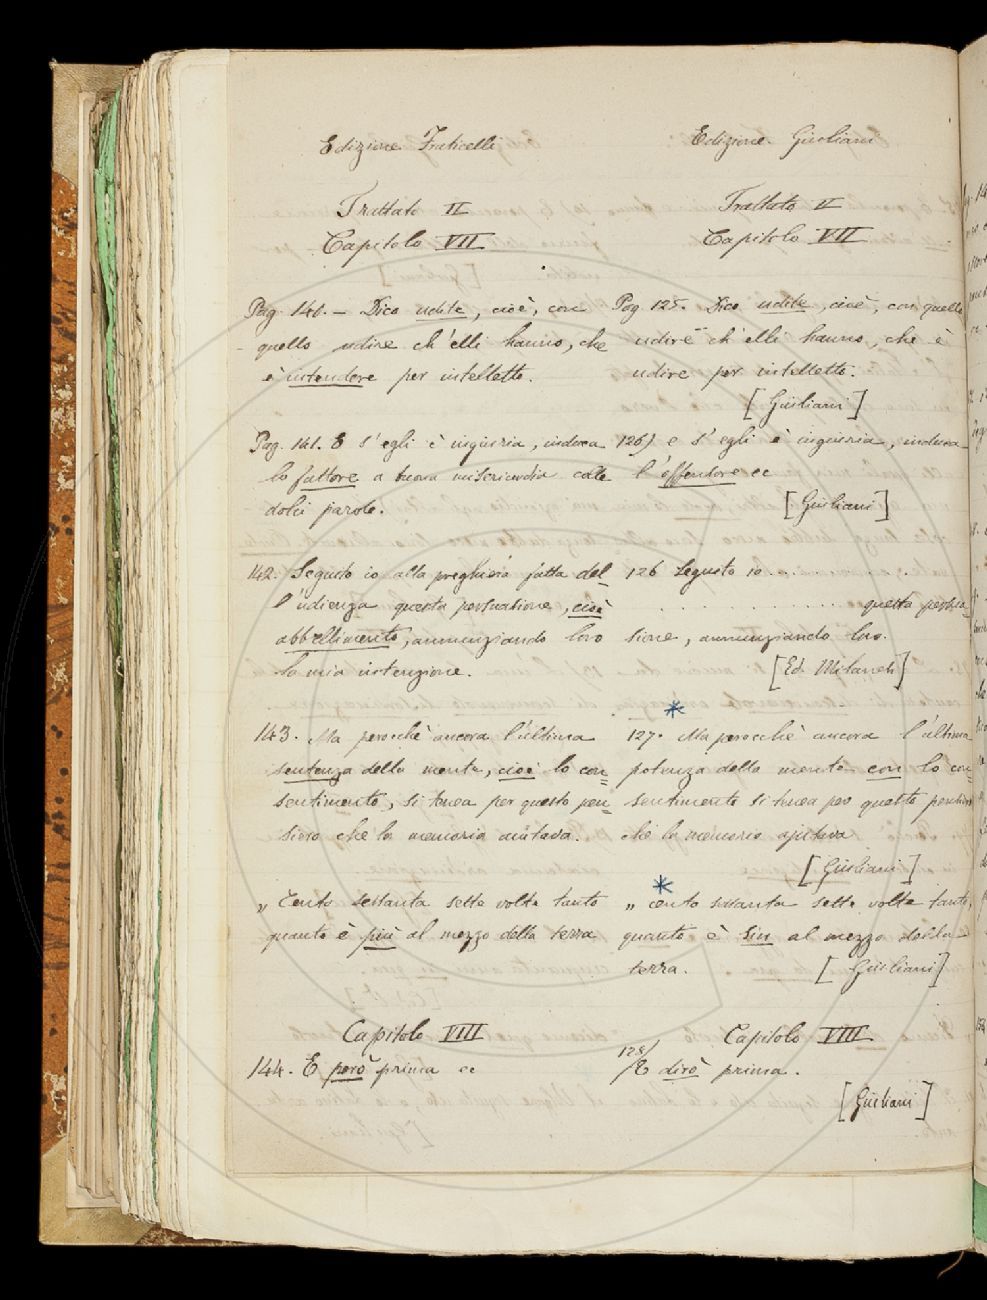 Edizione Fraticelli
Trattato II
Capitolo VII
Pag. 141. — Dico udite, cioè, con
quello udire ch'elli hanno, che
è intendere per intelletto.
Pag. 141. E s'egli è ingiuria, induca
lo fattore a buona misericordia colle
dolci parole.
142. Seguito io alla preghiera fatta del-
l'udienza questa persuasione, cioè
abbellimento, annunziando loro
la mia intenzione.
143. Ma perocchè ancora l'ultima
sentenza della mente, cioè lo con=
sentimento, si tenea per questo pen=
siero che la memoria aiutava.
„ Cento sessanta sette volte tanto
quanto è più al mezzo della terra
Capitolo VIII
144. E però prima ec
Edizione Giuliani
Trattato II
Capitolo VII
Pag. 125. Dico udite, cioè, con quello
udire ch'elli hanno, che è
udire per intelletto.
[Giuliani]
126) e s'egli è ingiuria, induca
l'offenditore ec
[Giuliani]
126 Seguito io . . . . .
. . . . . . . . . . questa persua
sione, annunziando loro.
[Ed. Milanesi]
*
127. Ma perocchè ancora l'ultima
potenza della mente con lo con=
sentimento si tenea per questo pensiero
che la memoria ajutava
[Giuliani]
*
„ cento sessanta sette volte tanto,
quanto è sin al mezzo della
terra. [Giuliani]
Capitolo VIII
128/
E dirò prima.
[Giuliani]